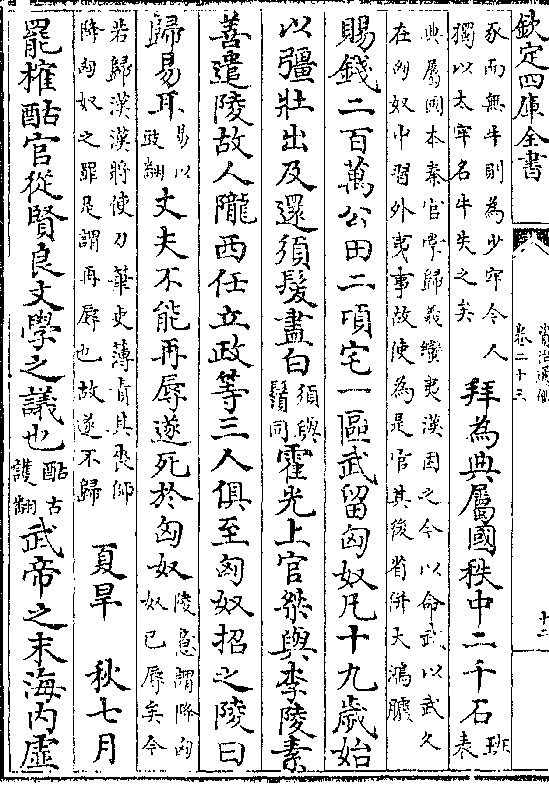 欽定四庫全書
資治通鑑
卷二十三
十二
豕而無牛則為少牢今人
獨以太牢名牛失之矣
拜為典屬國秩中二千石
班
表
典屬國本秦官掌歸義蠻夷漢因之今以命武以武久
在匈奴中習外夷事故使為是官其後省併大鴻臚
賜錢二百萬公田二頃宅一區武留匈奴凡十九歲始
以彊壯出及還須髮盡白
須與
鬚同
霍光上官桀與李陵素
善遣陵故人隴西任立政等三人俱至匈奴招之陵曰
歸易耳
易以
豉翻
丈夫不能再辱遂死於匈奴
陵意謂降匈
奴已辱矣今
若歸漢漢將使刀筆吏薄責其喪師
降匈奴之罪是謂再辱也故遂不歸
夏旱
秋七月
罷榷酤官從賢良文學之議也
酤古
護翻
武帝之末海內虛